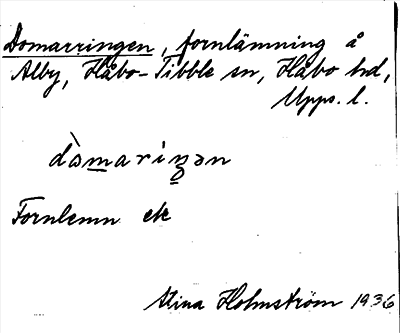 Domarringen, fornlämning å
Alby, Håbo-Tibble sn, Håbo hd,
Upps. l.
dòmariŋən
Fornlemn
Stina Holmström 1936